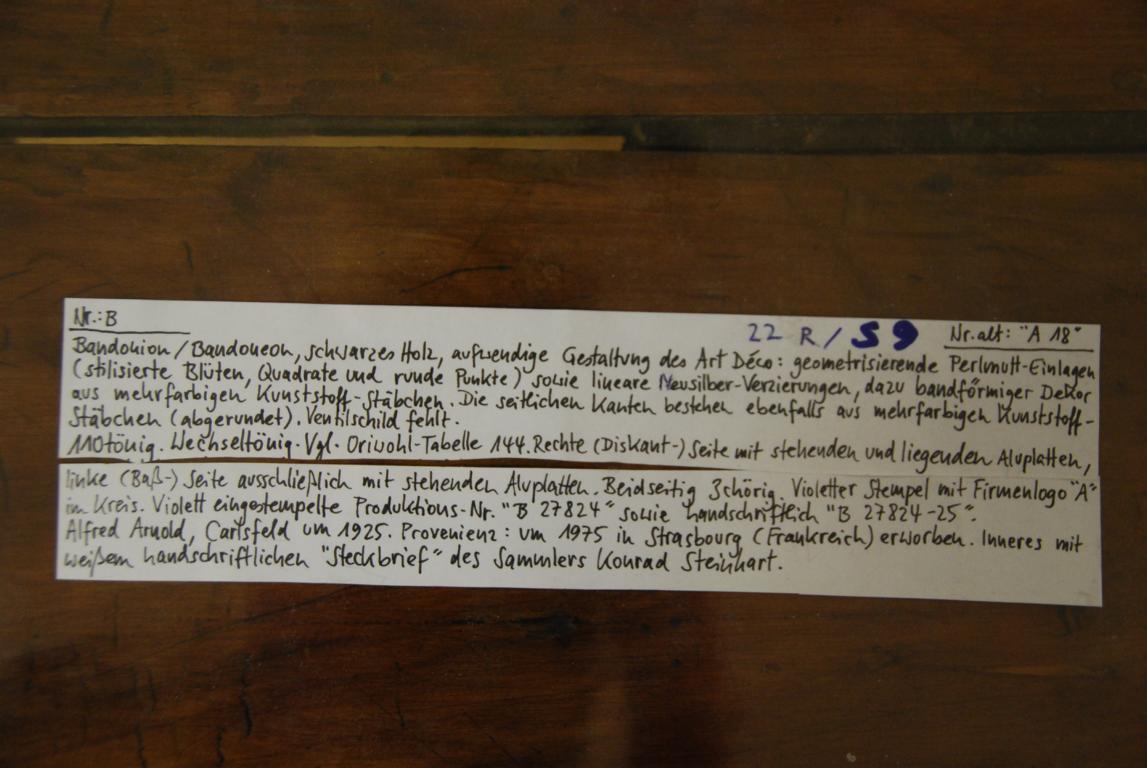 Nr.: B
22 R / S 9
Nr. alt: "A 18"
Bandonion / Bandoneon, schwarzes Holz, aufwendige Gestaltung des Art Déco: geometrisierende Perlmutt-Einlagen
(stilisierte Blüten, Quadrate und runde Punkte) sowie lineare Neusilber-Verzierungen, dazu bandförmiger Dekor
aus mehrfarbigen Kunststoff-Stäbchen. Die seitlichen Kanten bestehen ebenfalls aus mehrfarbigen Kunststoff-
Stäbchen (abgerundet). Ventilschild fehlt.
110tönig. Wechseltönig. Vgl. Oriwohl-Tabelle 144. Rechte (Diskant-) Seite mit stehenden und liegenden Aluplatten,
linke (Baß-) Seite ausschließlich mit stehenden Aluplatten. Beidseitig 3chörig. Violetter Stempel mit Firmenlogo "A"
im Kreis. Violett eingestempelte Produktions-Nr. "B 27824" sowie handschriftlich "B 27824-25".
Alfred Arnold, Carlsfeld um 1925. Provenienz: um 1975 in Strasbourg (Frankreich) erworben. Inneres mit
weißem handschriftlichen "Steckbrief" des Sammlers Konrad Steinhart.